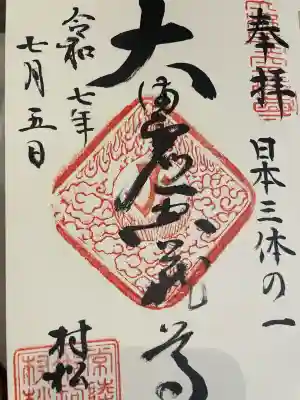 奉拝
日本三体の一
大満虚空蔵尊
村松
令和七年
七月五日